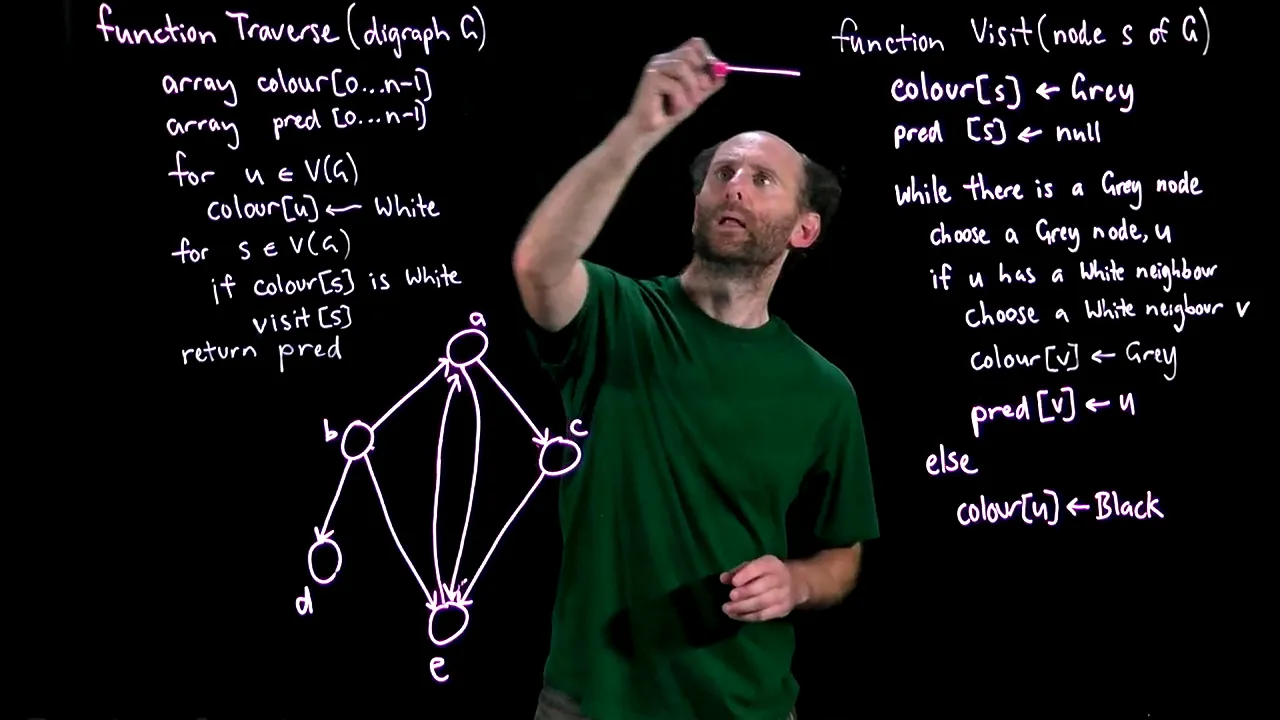 function Traverse (digraph G)
array colour[0...n-1]
array pred [0...n-1]
for u ∈ V(G)
colour[u] ← White
for s ∈ V(G)
if colour[s] is White
visit [s]
return pred
a
b
c
d
e
function Visit (node s of G)
colour[s] ← Grey
pred [s] ← null
while there is a Grey node
choose a Grey node, u
if u has a White neighbour
choose a White neigbour v
colour[v] ← Grey
pred [v] ← u
else
colour[u] ← Black